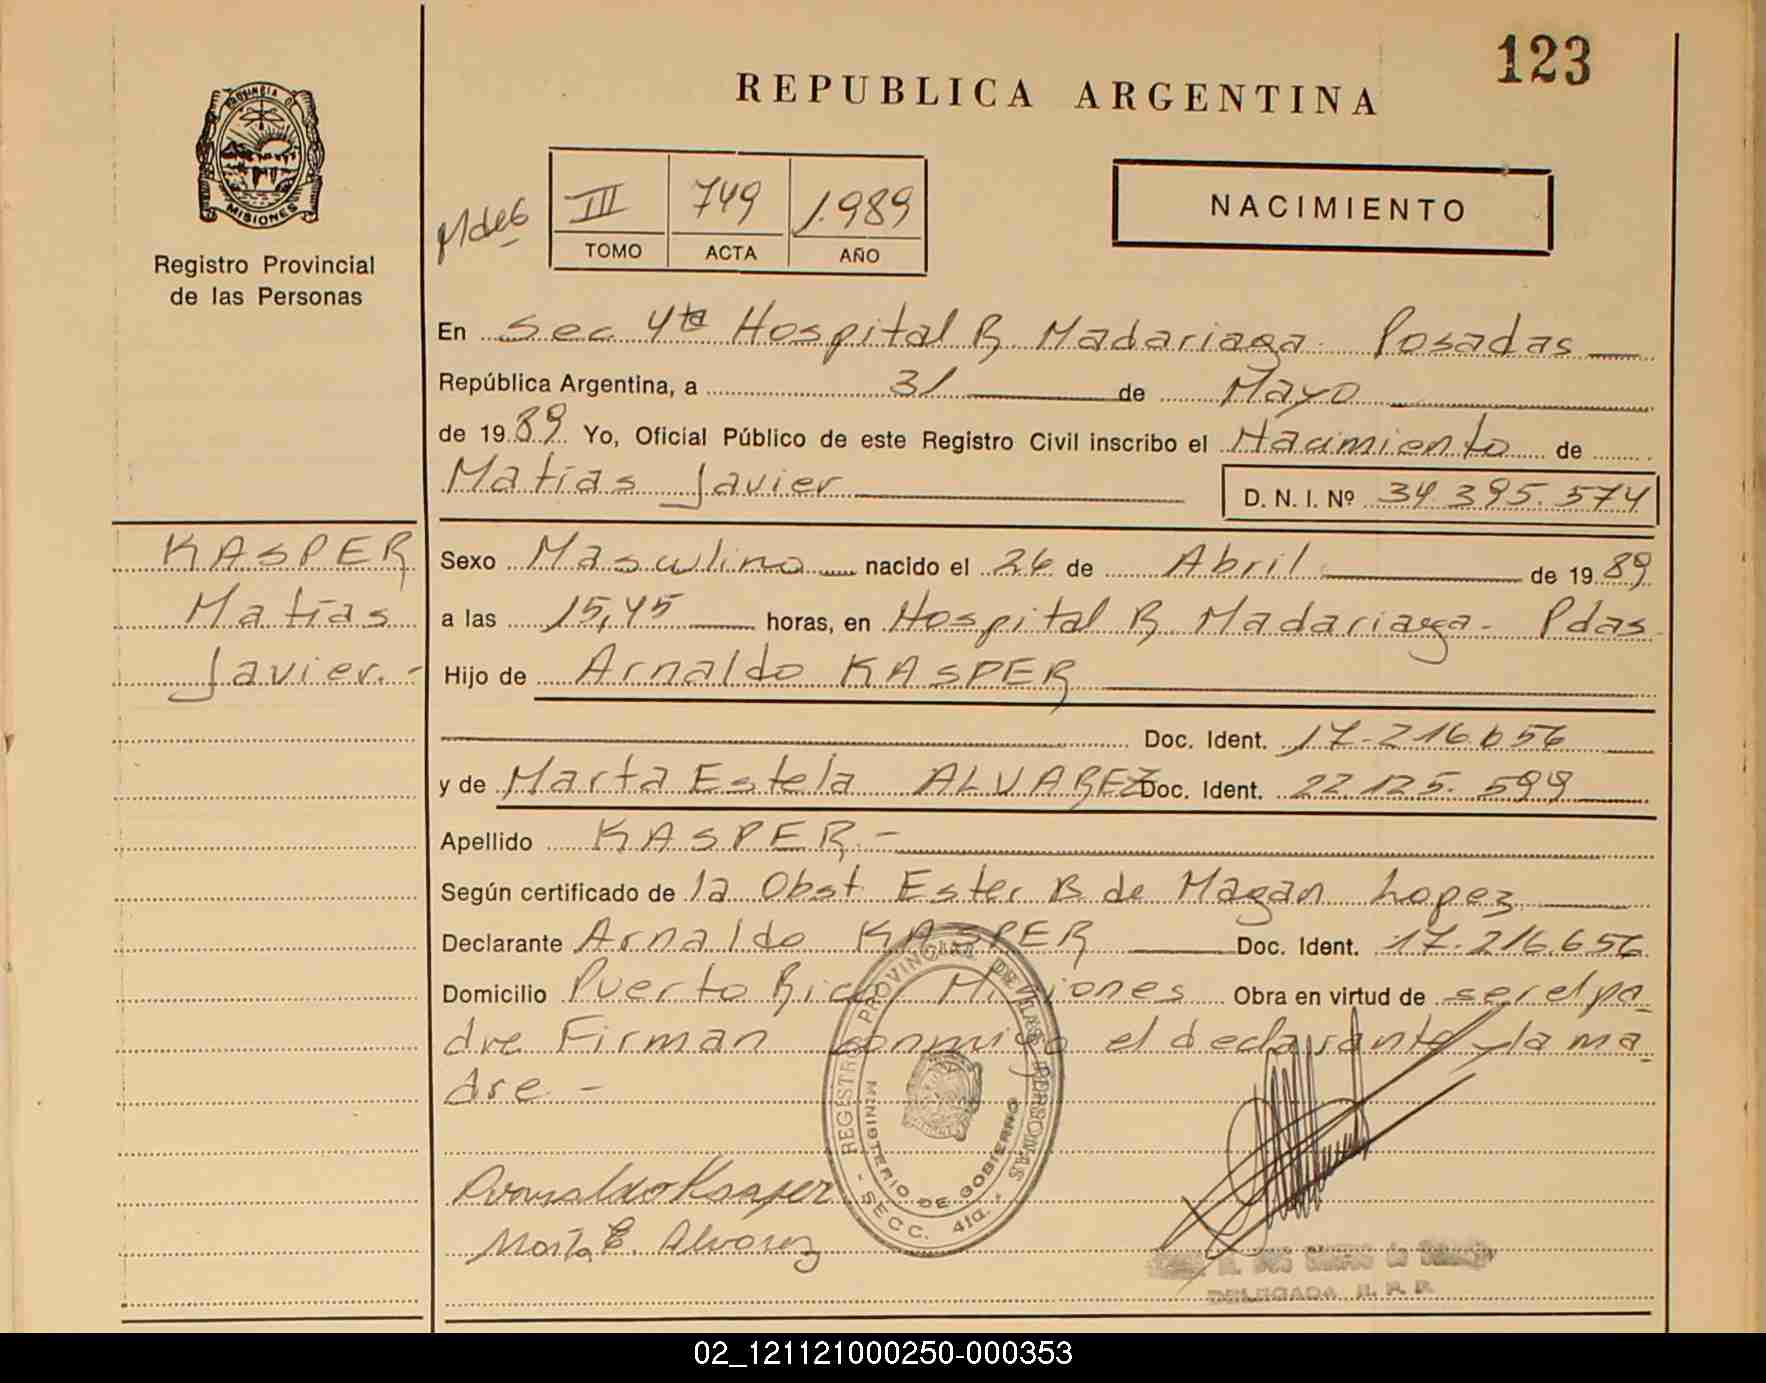 123
REPUBLICA ARGENTINA
PROVINCIA DE
MISIONES
Registro Provincial
de las Personas
III 749 1.989
TOMO ACTA AÑO
NACIMIENTO
En Sec 4ta Hospital R. Madariaga. Posadas
República Argentina, a 31 de Mayo
de 1989 Yo, Oficial Público de este Registro Civil inscribo el Nacimiento de
Matías Javier D. N. I. Nº 34.395.574
KASPER
Matías
Javier.-
Sexo Masculino nacido el 26 de Abril de 1989
a las 15,45 horas, en Hospital R. Madariaga - Pdas
Hijo de Arnaldo KASPER
Doc. Ident. 17.216.656
y de Marta Estela ALVAREZ Doc. Ident. 22.125.599
Apellido KASPER.-
Según certificado de la Obst. Ester B de Magan Lopez
Declarante Arnaldo KASPER Doc. Ident. 17.216.656
Domicilio Puerto Rico, Misiones Obra en virtud de ser el pa-
dre Firman conmigo el declarante y la ma-
dre.-
REGISTRO PROVINCIAL DE LAS PERSONAS
MINISTERIO DE GOBIERNO
- SECC. 4ta. -
Arnaldo Kasper
Marta E. Alvarez
DELEGADA R. P. P.
02_121121000250-000353